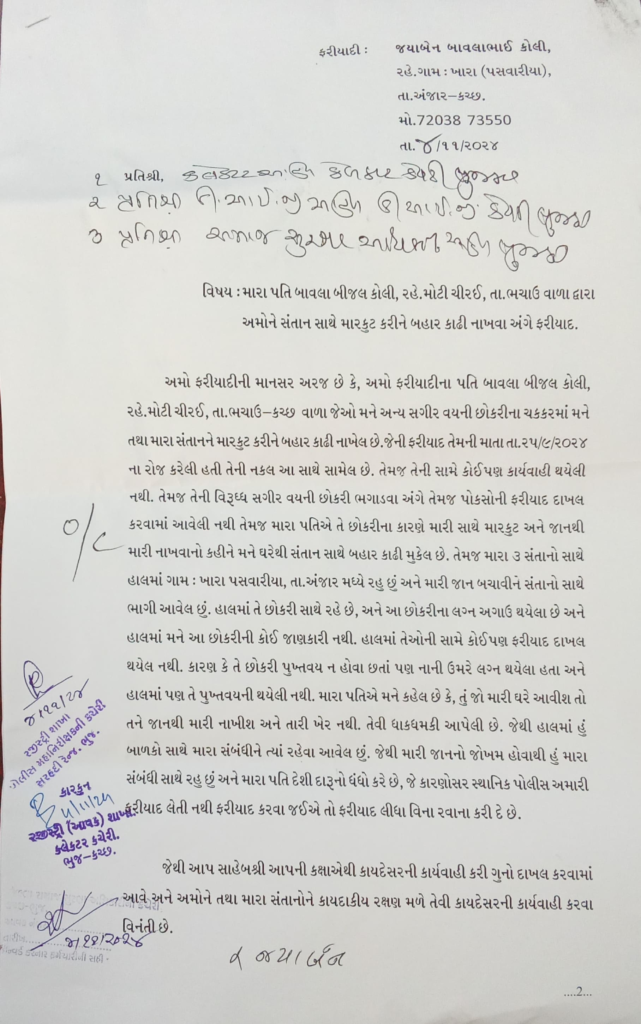 ફરીયાદી : જયાબેન બાવલાભાઈ કોલી,
રહે.ગામ : ખારા (પસવારીયા),
તા.અંજાર–કચ્છ.
મો.72038 73550
તા.૪/૧૧/૨૦૨૪
૧ પ્રતિશ્રી, કચેરી ભુજ
૨ પ્રતિશ્રી ડી.આઈ.જી કચેરી ભુજ
૩ પ્રતિશ્રી સમાજ સુરક્ષા અધિકારી ભુજ
વિષય : મારા પતિ બાવલા બીજલ કોલી, રહે.મોટી ચીરઈ, તા.ભચાઉ વાળા દ્વારા
અમોને સંતાન સાથે મારકુટ કરીને બહાર કાઢી નાખવા અંગે ફરીયાદ.
અમો ફરીયાદીની માનસર અરજ છે કે, અમો ફરીયાદીના પતિ બાવલા બીજલ કોલી,
રહે.મોટી ચીરઈ, તા.ભચાઉ–કચ્છ વાળા જેઓ મને અન્ય સગીર વયની છોકરીના ચકકરમાં મને
તથા મારા સંતાનને મારકુટ કરીને બહાર કાઢી નાખેલ છે.જેની ફરીયાદ તેમની માતા તા.૨૫/૯/૨૦૨૪
ના રોજ કરેલી હતી તેની નકલ આ સાથે સામેલ છે. તેમજ તેની સામે કોઈપણ કાર્યવાહી થયેલી
નથી. તેમજ તેની વિરૂધ્ધ સગીર વયની છોકરી ભગાડવા અંગે તેમજ પોકસોની ફરીયાદ દાખલ
કરવામાં આવેલી નથી તેમજ મારા પતિએ તે છોકરીના કારણે મારી સાથે મારકુટ અને જાનથી
મારી નાખવાનો કહીને મને ઘરેથી સંતાન સાથે બહાર કાઢી મુકેલ છે. તેમજ મારા ૩ સંતાનો સાથે
હાલમાં ગામ : ખારા પસવારીયા, તા.અંજાર મધ્યે રહુ છું અને મારી જાન બચાવીને સંતાનો સાથે
ભાગી આવેલ છું. હાલમાં તે છોકરી સાથે રહે છે, અને આ છોકરીના લગ્ન અગાઉ થયેલા છે અને
હાલમાં મને આ છોકરીની કોઈ જાણકારી નથી. હાલમાં તેઓની સામે કોઈપણ ફરીયાદ દાખલ
થયેલ નથી. કારણ કે તે છોકરી પુખ્તવય ન હોવા છતાં પણ નાની ઉમરે લગ્ન થયેલા હતા અને
હાલમાં પણ તે પુખ્તવયની થયેલી નથી. મારા પતિએ મને કહેલ છે કે, તું જો મારી ઘરે આવીશ તો
તને જાનથી મારી નાખીશ અને તારી ખેર નથી. તેવી ધાકધમકી આપેલી છે. જેથી હાલમાં હું
બાળકો સાથે મારા સંબંધીને ત્યાં રહેવા આવેલ છું. જેથી મારી જાનનો જોખમ હોવાથી હું મારા
સંબંધી સાથે રહુ છું અને મારા પતિ દેશી દારૂનો ધંધો કરે છે, જે કારણોસર સ્થાનિક પોલીસ અમારી
ફરીયાદ લેતી નથી ફરીયાદ કરવા જઈએ તો ફરીયાદ લીધા વિના રવાના કરી દે છે.
જેથી આપ સાહેબશ્રી આપની કક્ષાએથી કાયદેસરની કાર્યવાહી કરી ગુનો દાખલ કરવામાં
આવે અને અમોને તથા મારા સંતાનોને કાયદાકીય રક્ષણ મળે તેવી કાયદેસરની કાર્યવાહી કરવા
વિનંતી છે.
O/C
૪/૧૧/૨૪
રજીસ્ટ્રી શાખા
પોલીસ મહાનિરીક્ષકની કચેરી
સરહદી રેન્જ, ભુજ.
કારકુન
રજીસ્ટ્રી (આવક) શાખા,
કલેકટર કચેરી.
ભુજ–કચ્છ.
૪/૧૧/૨૦૨૪
જયાબેન
....2...